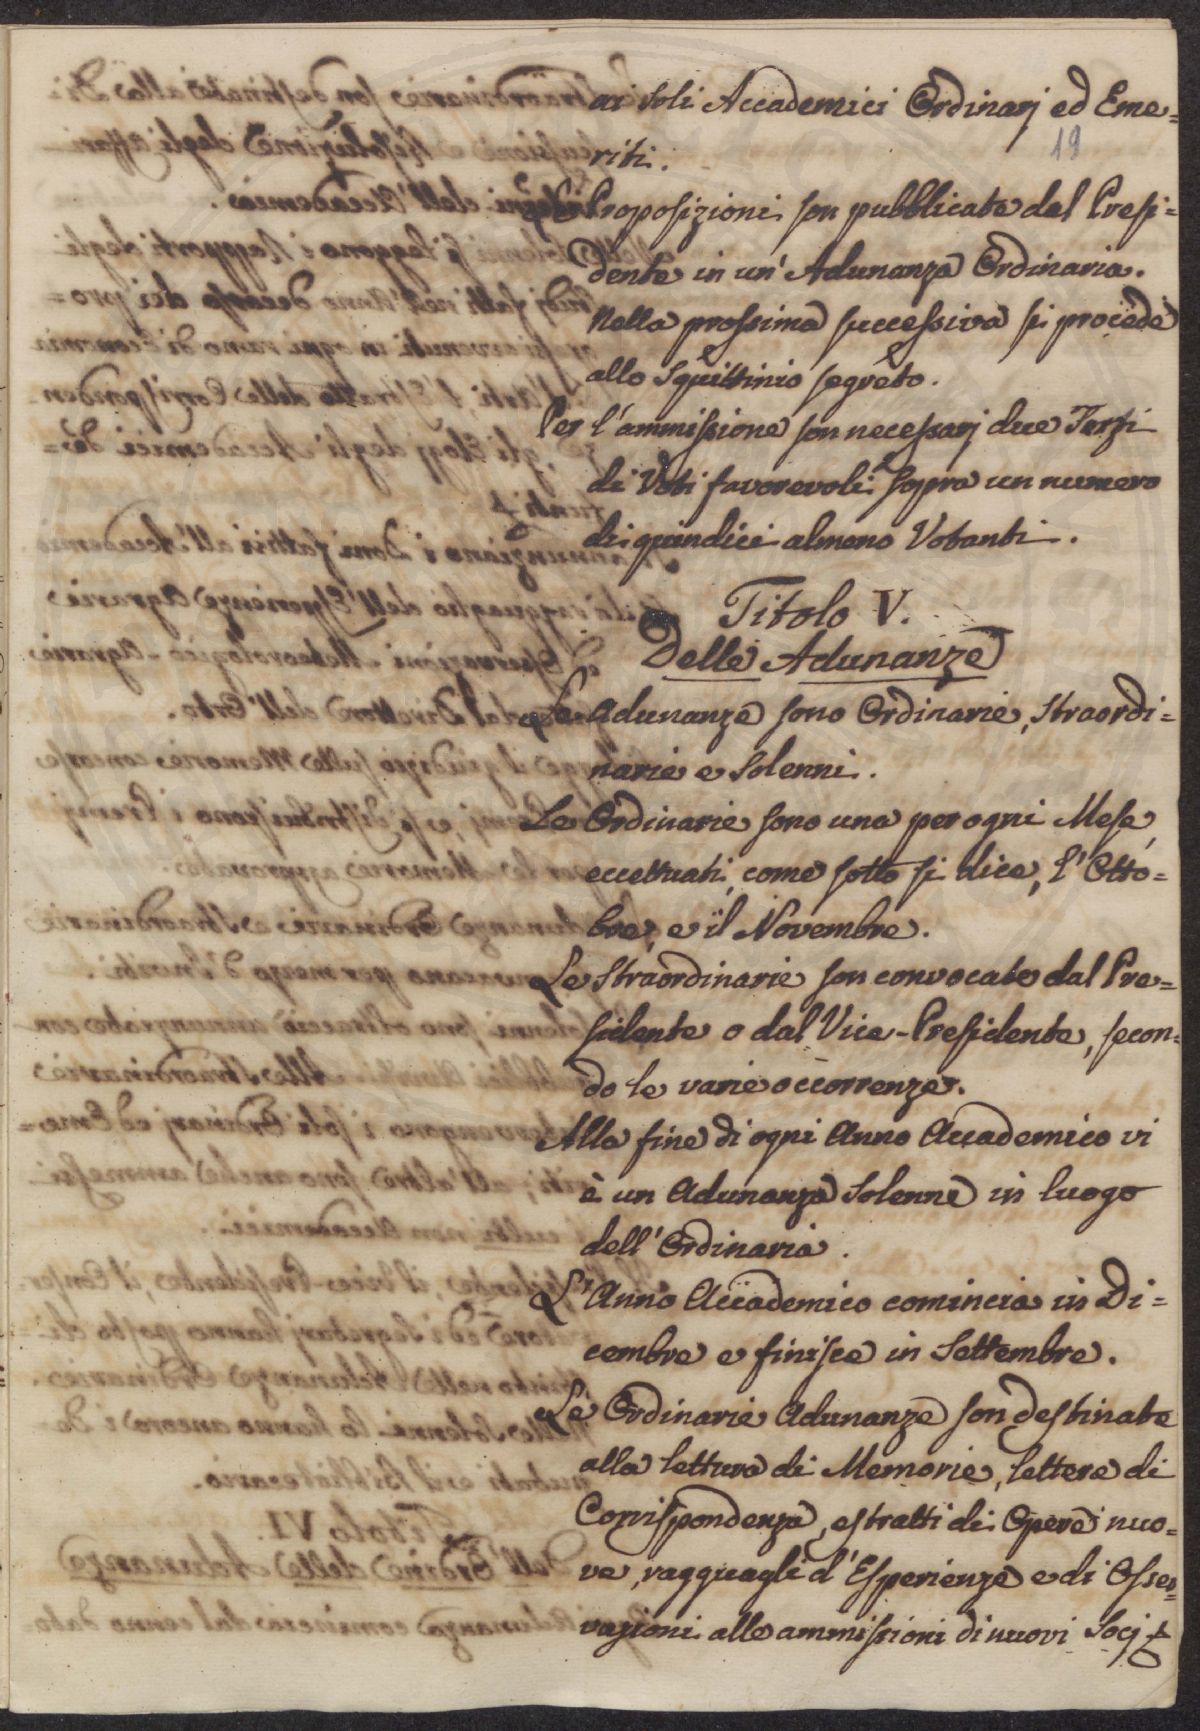 ai soli Accademici Ordinarj ed Eme=
19
riti.
Le Proposizioni son pubblicate dal Presi=
dente in un' Adunanza Ordinaria.
Nella prossima successiva si procede
allo Squittinio segreto.
Per l'ammissione son necessarj due Terzi
di Voti favorevoli sopra un numero
di quindici almeno Votanti.
Titolo V.
Delle Adunanze
Le Adunanze sono Ordinarie, Straordi=
narie e Solenni.
Le Ordinarie sono una per ogni Mese,
eccettuati, come sotto si dice, l'Otto=
bre, e il Novembre.
Le Straordinarie son convocate dal Pre=
sidente o dal Vice-Presidente, secon=
do le varie occorrenze.
Alla fine di ogni Anno Accademico vi
è un Adunanza Solenne in luogo
dell'Ordinaria.
L'Anno Accademico comincia in Di=
cembre e finisce in Settembre.
Le Ordinarie Adunanze son destinate
alla lettura di Memorie, lettere di
Corrispondenza, estratti di Opere nuo=
ve, ragguagli d'Esperienze e di Osser=
vazioni alle ammissioni di nuovi Socj